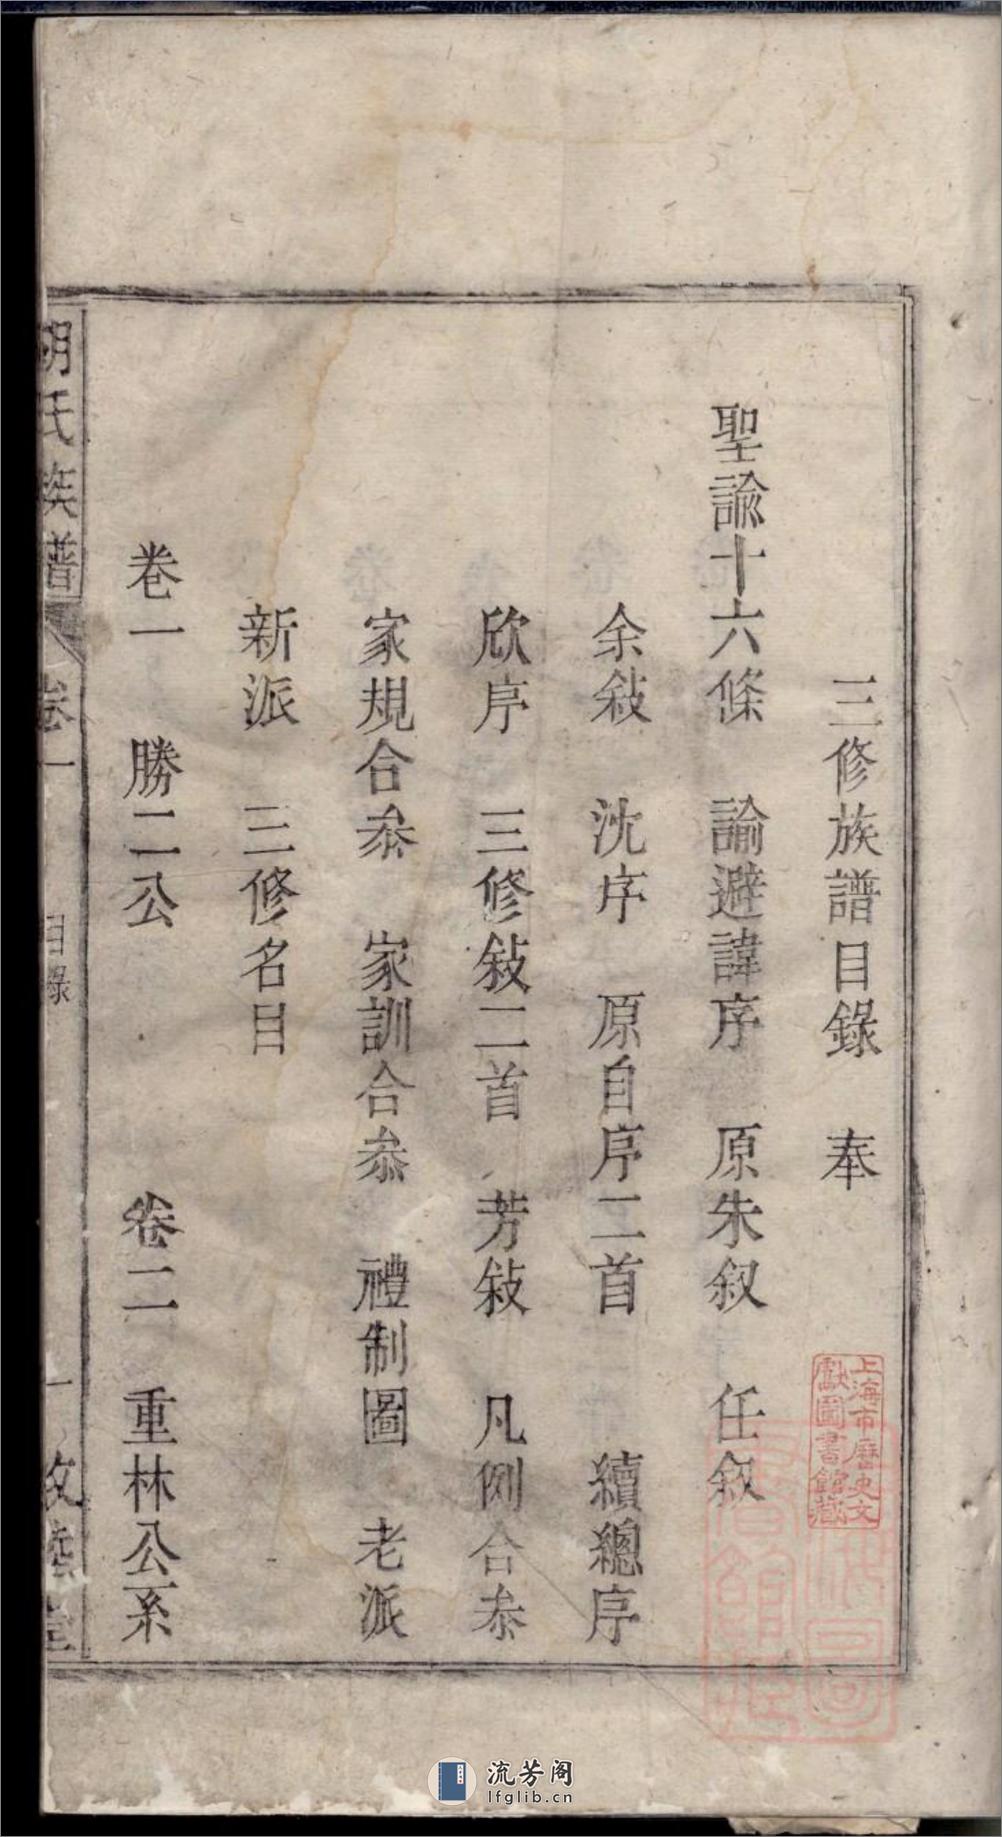 三修族譜目錄　奉
聖諭十六條　諭避諱序　原朱叙　任敘
余敍　沈序　原自序二首　續總序
欣序　三修敍二首　芳敍　凡例合叅
家規合叅　家訓合叅　禮制圖　老派
新派　三修名目
卷一　勝二公　卷二　重林公系
胡氏族譜　卷一　目錄　一　敦睦堂
上海市歷史文
獻圖書館藏
流芳阁
lfglib.cn